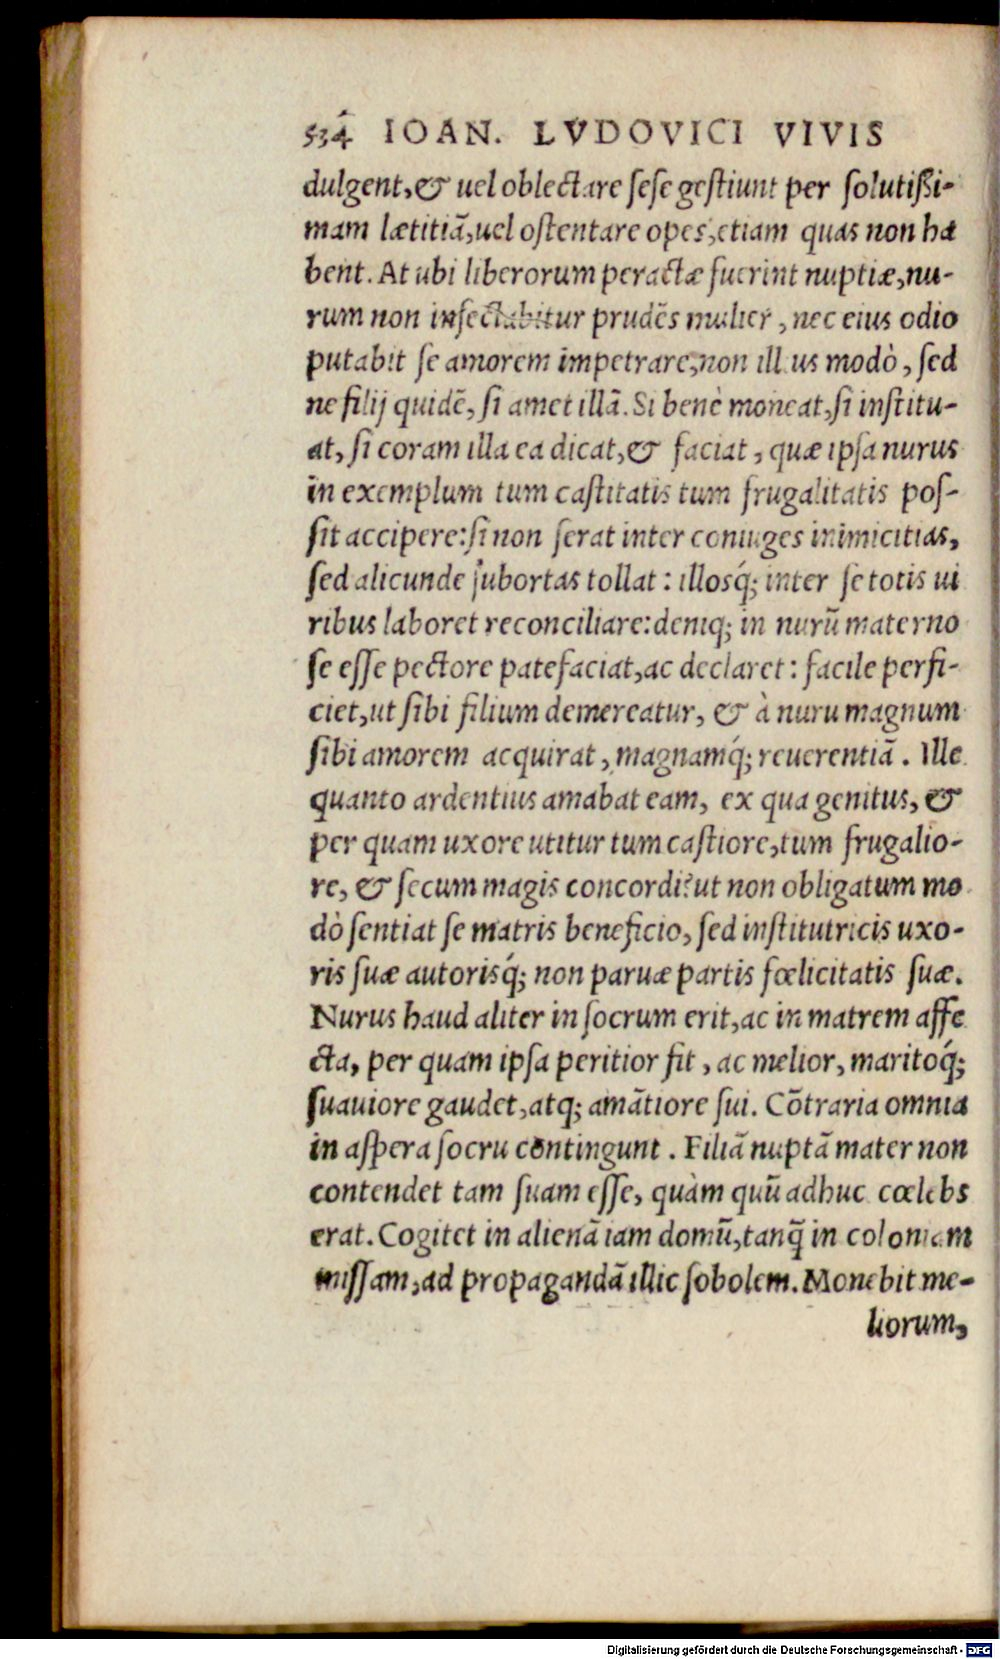 534 IOAN. LVDOVICI VIVIS
dulgent, & uel oblectare sese gestiunt per solutißi-
mam lætitiã, uel ostentare opes, etiam quas non ha
bent. At ubi liberorum peractæ fuerint nuptiæ, nu-
rum non insectabitur prudẽs mulier, nec eius odio
putabit se amorem impetrare, non illius modò, sed
ne filij quidẽ, si amet illã. Si benè moneat, si institu-
at, si coram illa ea dicat, & faciat, quæ ipsa nurus
in exemplum tum castitatis tum frugalitatis pos-
sit accipere: si non serat inter coniuges inimicitias,
sed alicunde subortas tollat: illosq́; inter se totis ui
ribus laboret reconciliare: deniq; in nurũ materno
se esse pectore patefaciat, ac declaret: facile perfi-
ciet, ut sibi filium demereatur, & à nuru magnum
sibi amorem acquirat, magnamq́; reuerentiã. Ille
quanto ardentius amabat eam, ex qua genitus, &
per quam uxore utitur tum castiore, tum frugalio-
re, & secum magis concordi? ut non obligatum mo
dò sentiat se matris beneficio, sed institutricis uxo-
ris suæ autorisq́; non paruæ partis fœlicitatis suæ.
Nurus haud aliter in socrum erit, ac in matrem affe
cta, per quam ipsa peritior fit, ac melior, maritoq́;
suauiore gaudet, atq; amãtiore sui. Cõtraria omnia
in aspera socru contingunt. Filiã nuptã mater non
contendet tam suam esse, quàm quũ adhuc cœlebs
erat. Cogitet in alienã iam domũ, tanq̃ in coloniam
missam, ad propagandã illic sobolem. Monebit me-
liorum,
Digitalisierung gefördert durch die Deutsche Forschungsgemeinschaft - DFG